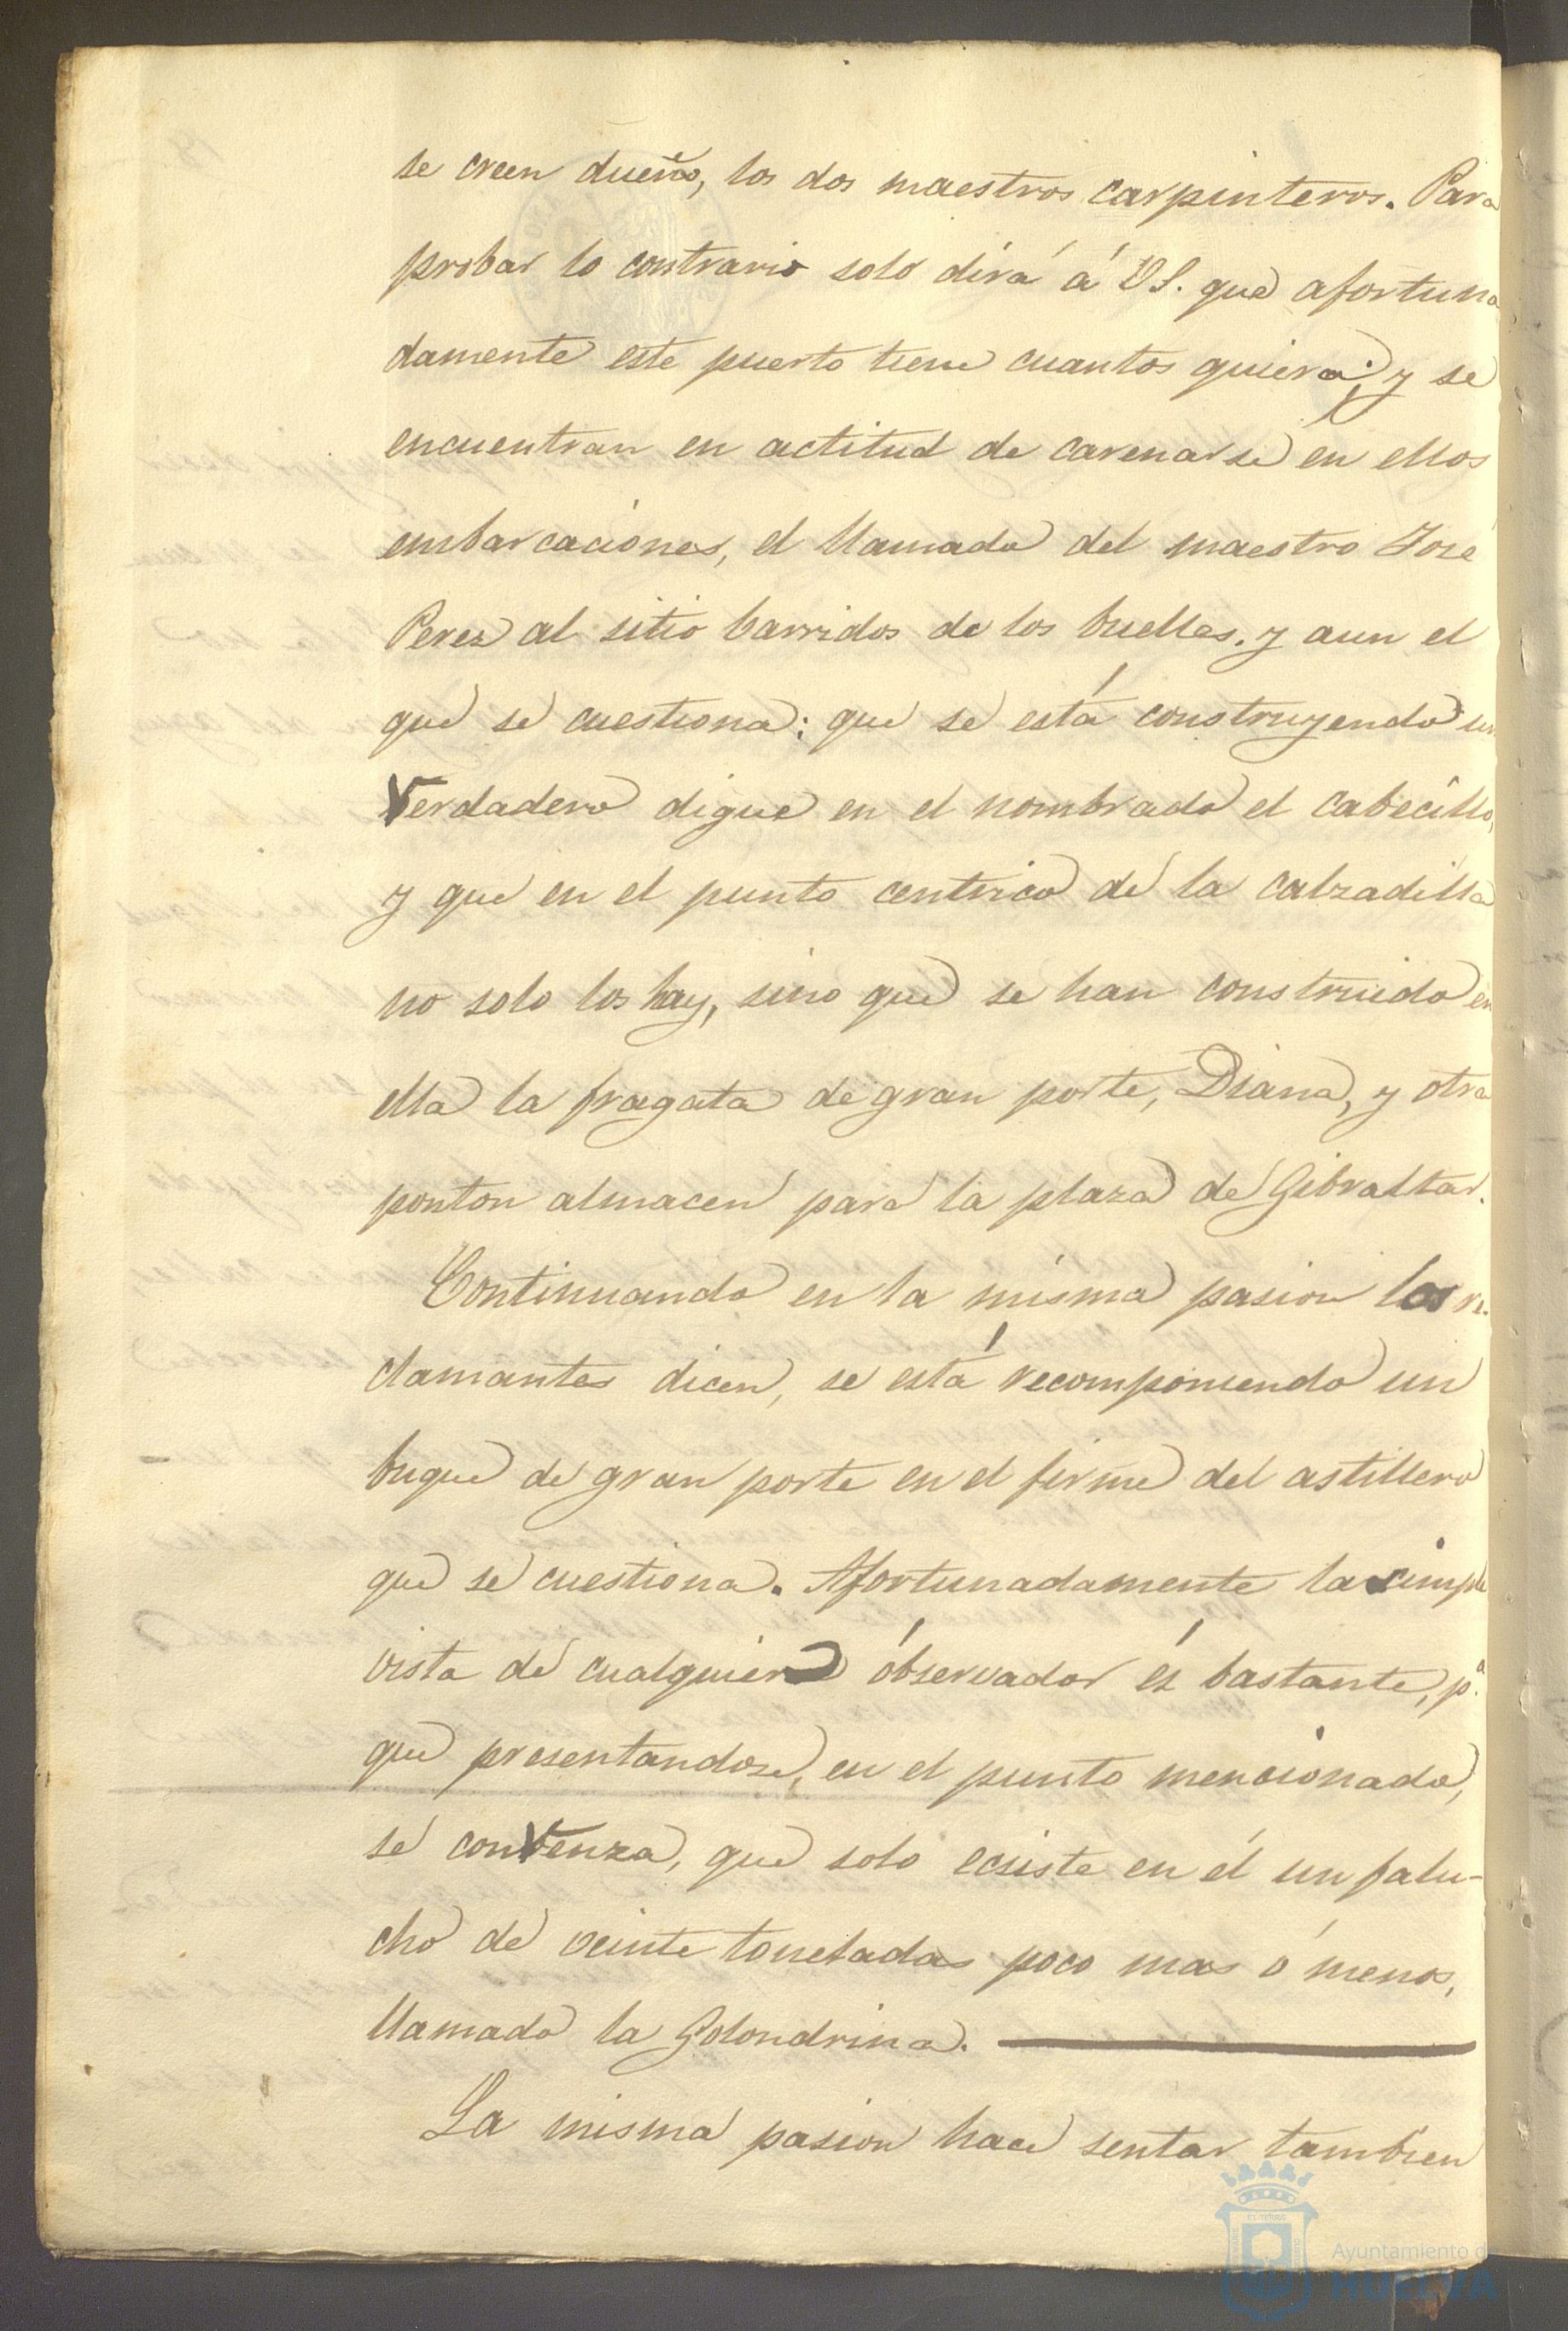 se creen dueño, los dos maestros carpinteros. Para
probar lo contrario solo dirá á VS. que afortuna
damente este puerto tiene cuantos quiera; y se
encuentran en actitud de carenarse en ellos
embarcaciones, el llamado del maestro José
Perez al sitio barridos de los buelles, y aun el
que se cuestiona: que se está construyendo un
verdadero digue en el nombrado el cabecillo,
y que en el punto centrico de la calzadilla
no solo los hay, sino que se han construido en
ella la fragata de gran porte, Diana, y otra
ponton almacen para la plaza de Gibraltar.
Continuando en la misma pasion los re-
clamantes dicen, se está recomponiendo un
buque de gran porte en el firme del astillero
que se cuestiona. Afortunadamente la simple
vista de cualquier observador es bastante, pª.
que presentandose, en el punto mencionado,
se convenza, que solo ecsiste en él un falu-
cho de veinte toneladas poco mas ó menos,
llamado la Golondrina.
La misma pasion hace sentar tambien
Ayuntamiento de
HUELVA